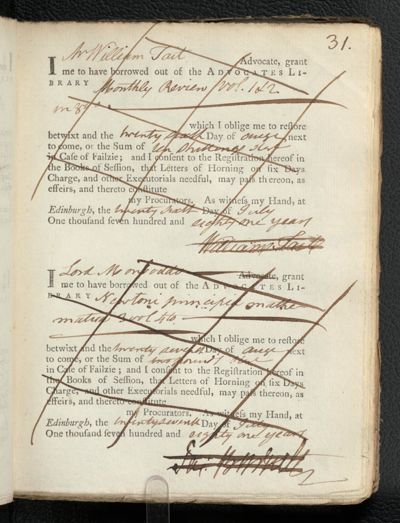 31.
Mr William Tait Advocate, grant
I me to have borrowed out of the ADVOCATES LI-
BRARY Monthly Review Vol. 1 & 2
in 8vo
which I oblige me to reſtore
betwixt and the twenty sixth Day of next
to come, or the Sum of
in Caſe of Failzie; and I conſent to the Regiſtration hereof in
the Books of Seſſion, that Letters of Horning on ſix Days
Charge, and other Executorials needful, may paſs thereon, as
effeirs, and thereto conſtitute
my Procurators. As witneſs my Hand, at
Edinburgh, the twenty sixth Day of July
One thouſand ſeven hundred and eighty one years
William Tait
Lord Monboddo Advocate, grant
I me to have borrowed out of the ADVOCATES LI-
BRARY Newtons principia mathe
matica 3 vol 4to
which I oblige me to reſtore
betwixt and the twenty seventh Day of next
to come, or the Sum of
in Caſe of Failzie; and I conſent to the Regiſtration hereof in
the Books of Seſſion, that Letters of Horning on ſix Days
Charge, and other Executorials needful, may paſs thereon, as
effeirs, and thereto conſtitute
my Procurators. As witneſs my Hand, at
Edinburgh, the twenty seventh Day of July
One thouſand ſeven hundred and eighty one years